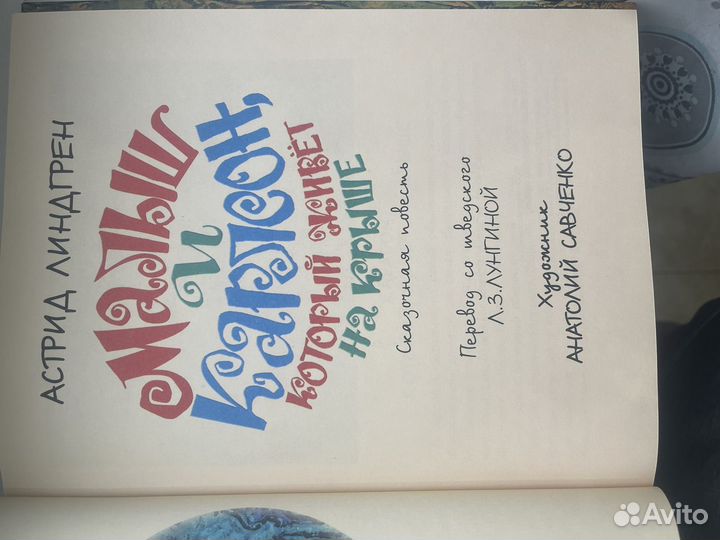 АСТРИД ЛИНДГРЕН
Малыш
и
Карлсон,
который живёт
на крыше
Сказочная повесть
Перевод со шведского
Л.З.ЛУНГИНОЙ
Художник
АНАТОЛИЙ САВЧЕНКО
Avito